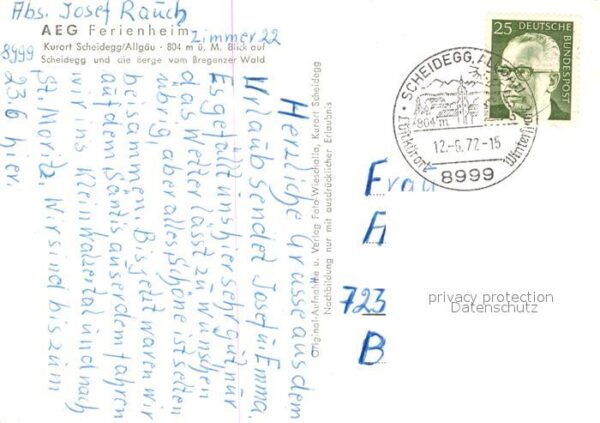 Abs. Josef Rauch
Zimmer 22
8999
AEG Ferienheim
Kurort Scheidegg/Allgäu · 804 m ü. M. Blick auf
Scheidegg und die Berge vom Bregenzer Wald
Herzliche Grüsse aus dem
Urlaub sendet Josef u. Emma.
Es gefällt uns hier sehr gut nur
das Wetter lässt zu wünschen
übrig, aber alles Schöne ist selten
beisammen. Bis jetzt waren wir
auf dem Säntis auserdem fahren
wir ins Kleinwalzertal und nach
St. Moritz. Wir sind bis zum
23.6 hier.
Original-Aufnahme u. Verlag Foto-Wieschalla, Kurort Scheidegg
Nachbildung nur mit ausdrücklicher Erlaubnis
25 DEUTSCHE
BUNDESPOST
SCHEIDEGG, ALLGÄU
804 m
12.-6.72-15
Luftkurort
8999
Frau
A
723
B
privacy protection
Datenschutz